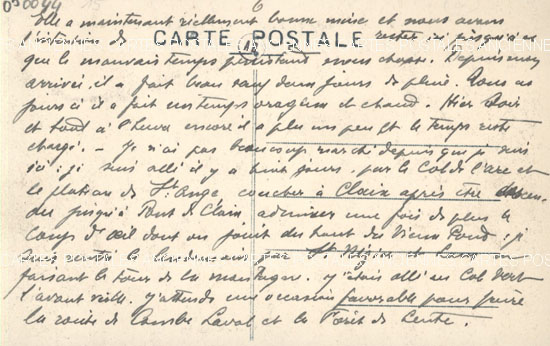 6
Elle a maintenant réellement bonne mine et nous avons
l'intention de CARTE POSTALE rester ici jusqu'à ce
que le mauvais temps persistant nous chasse. Depuis mon
arrivée, il a fait beau sauf deux jours de pluie. Tous ces
jours ci il a fait un temps orageux et chaud. Hier soir
et tout à l'heure encore il a plu un peu et le temps reste
chargé. - Je n'ai pas beaucoup marché depuis que je suis
ici : je suis allé il y a huit jours par le Col de l'Arc et
le plateau de St Ange coucher à Claix après être descen-
du jusqu'à Pont de Claix admirer une fois de plus le
coup d'œil dont on jouit du haut du Vieux Pont : je
suis par St Nizier
faisant le tour de la montagne. J'étais allé au Col Vert
l'avant veille. J'attends une occasion favorable pour faire
la route de Combe Laval et la Forêt de Lente.